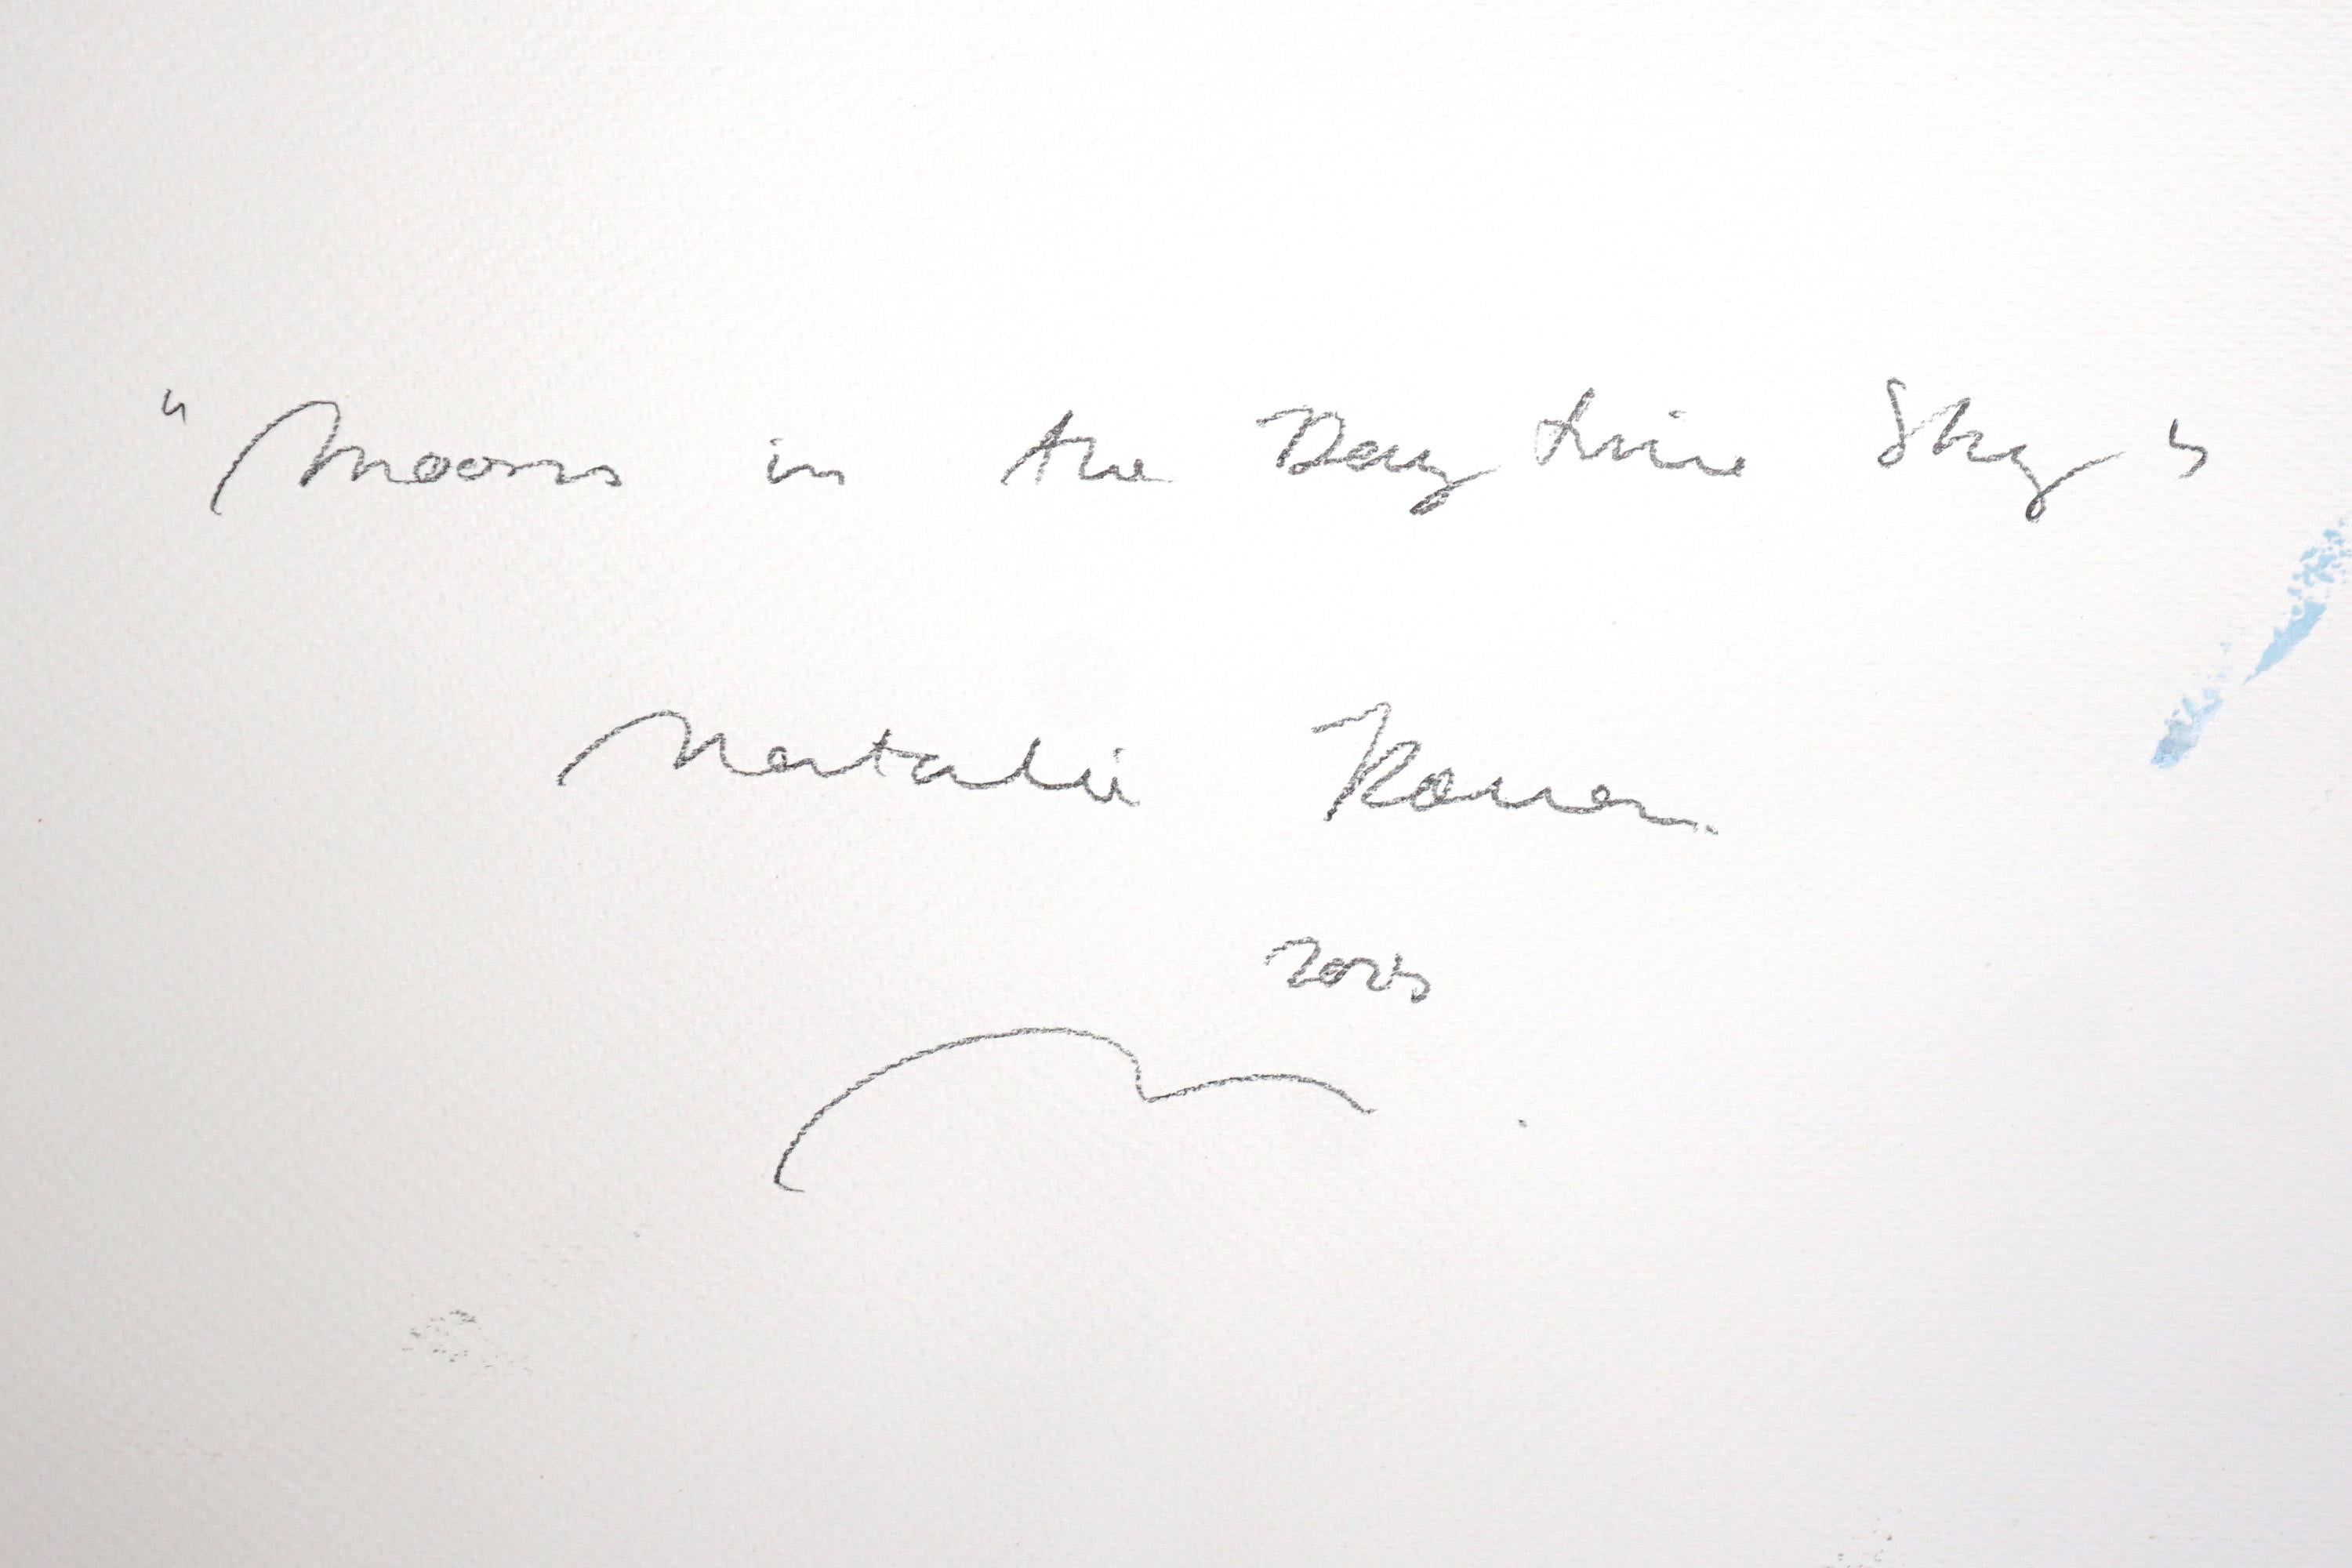 "Moons in the Daytime Sky"
Natalie
2025